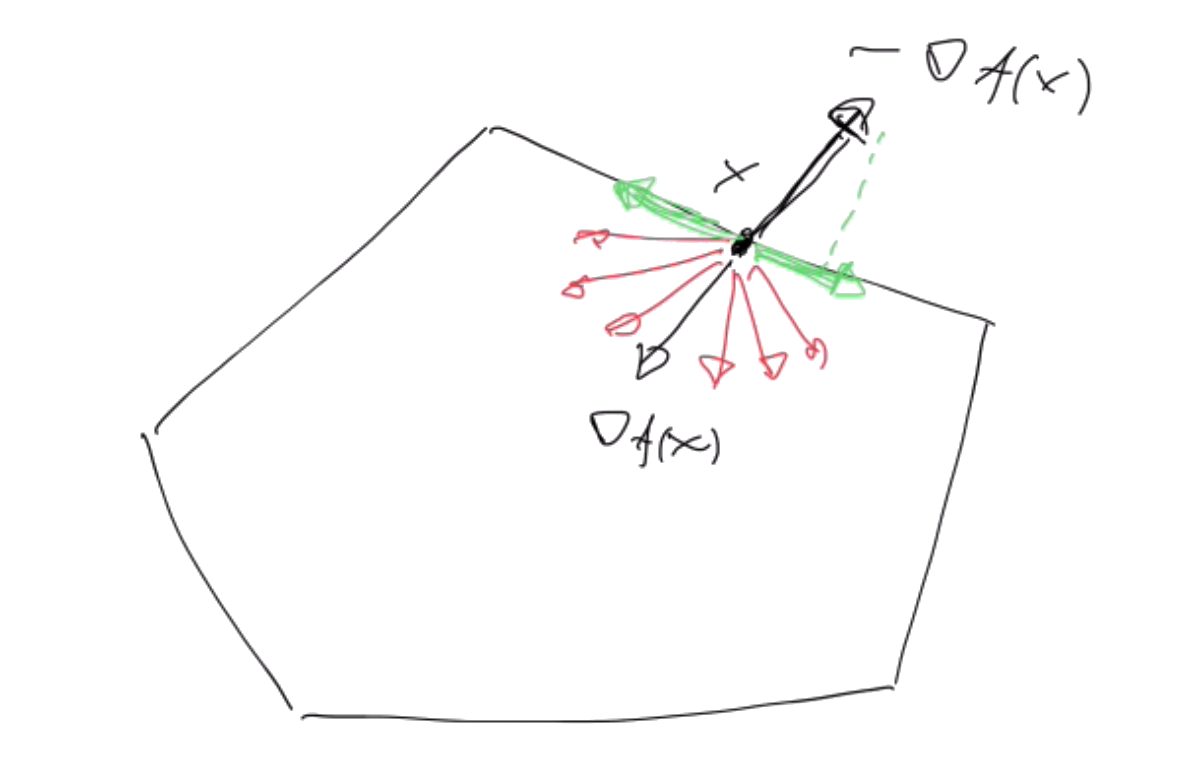 - ∇f(x)
x
∇f(x)